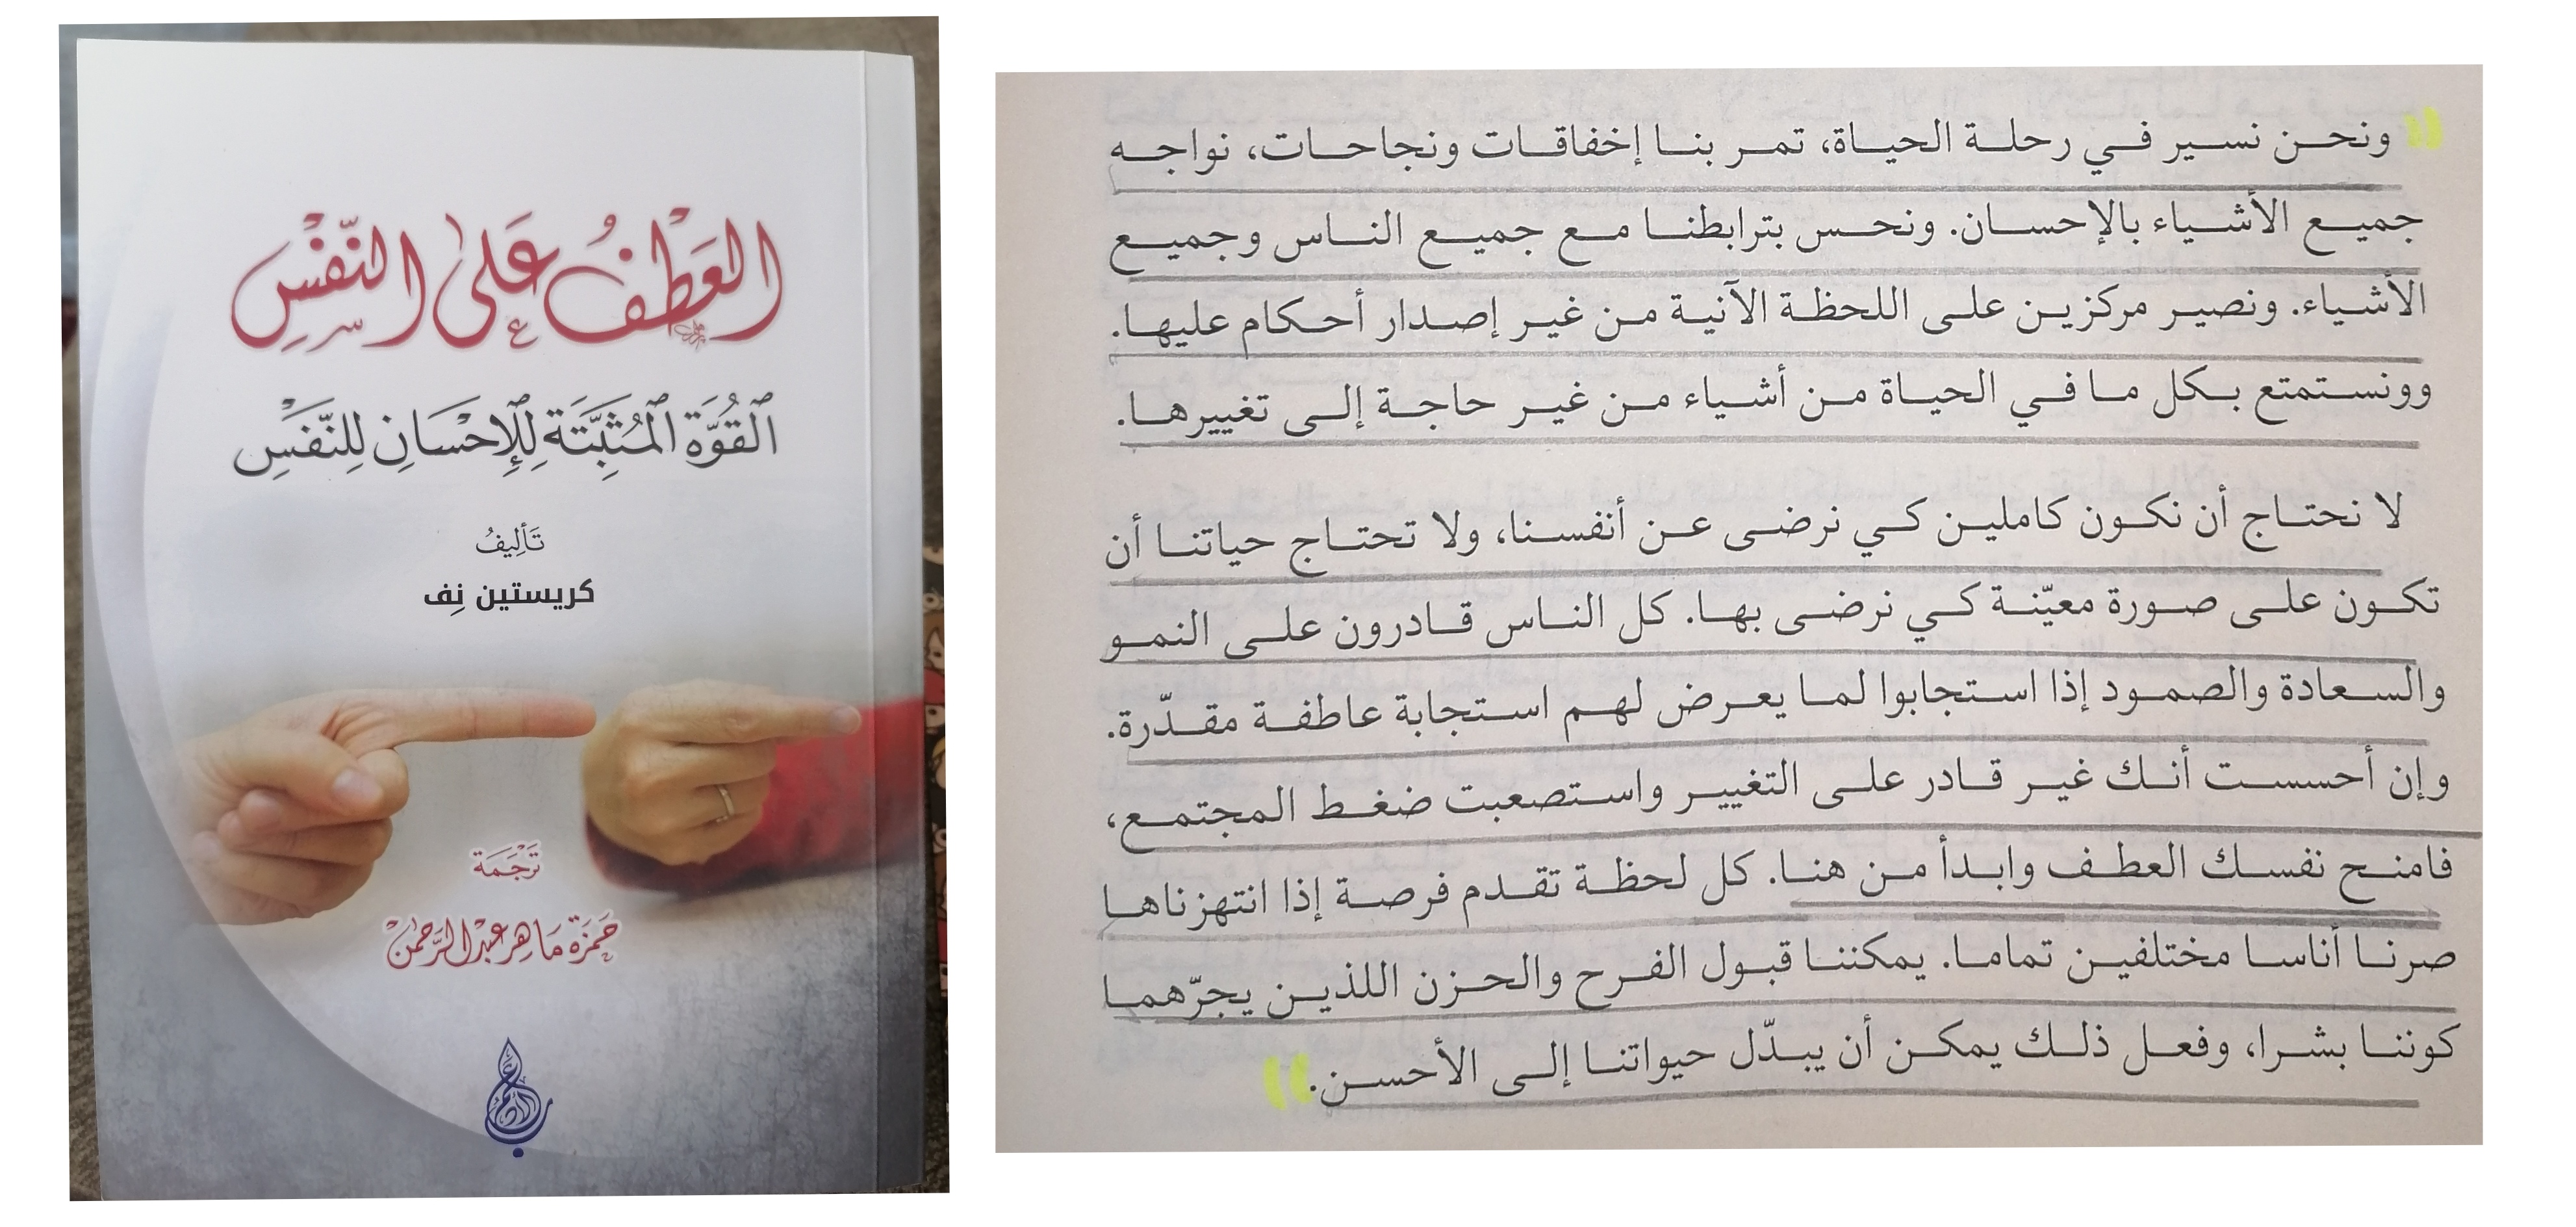 العَطْفُ عَلى النّفْسِ
القُوَّة المُثبِّتَة لِلإحْسَانِ لِلنَّفْسِ
تَأليفُ
كريستين نِف
تَرْجَمَة
حَمزَة مَاهِر عَبْد الرَّحمٰنْ
ونحن نسير في رحلة الحياة، تمر بنا إخفاقات ونجاحات، نواجه
جميع الأشياء بالإحسان. ونحس بترابطنا مع جميع الناس وجميع
الأشياء. ونصير مركزين على اللحظة الآنية من غير إصدار أحكام عليها.
وونستمتع بكل ما في الحياة من أشياء من غير حاجة إلى تغييرها.
لا نحتاج أن نكون كاملين كي نرضى عن أنفسنا، ولا تحتاج حياتنا أن
تكون على صورة معيّنة كي نرضى بها. كل الناس قادرون على النمو
والسعادة والصمود إذا استجابوا لما يعرض لهم استجابة عاطفة مقدّرة.
وإن أحسست أنك غير قادر على التغيير واستصعبت ضغط المجتمع،
فامنح نفسك العطف وابدأ من هنا. كل لحظة تقدم فرصة إذا انتهزناها
صرنا أناسا مختلفين تماما. يمكننا قبول الفرح والحزن اللذين يجرّهما
كوننا بشرا، وفعل ذلك يمكن أن يبدّل حيواتنا إلى الأحسن.